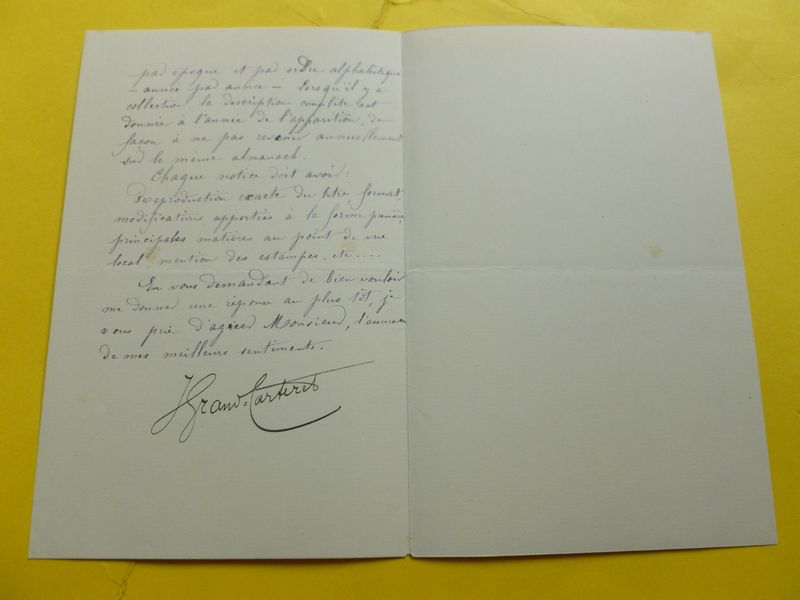 par époque et par ordre alphabétique
- année par année - Lorsqu'il y a
collection la description complète est
donnée à l'année de l'apparition, de
façon à ne pas revenir annuellement
sur le même almanach.
Chaque notice doit avoir :
Reproduction exacte du titre, format,
modifications apportées à la forme première,
principales matières au point de vue
local, mention des estampes, etc....
En vous demandant de bien vouloir
me donner une réponse au plus tôt, je
vous prie d'agréer Monsieur, l'assurance
de mes meilleurs sentiments.
J Grand-Carteret